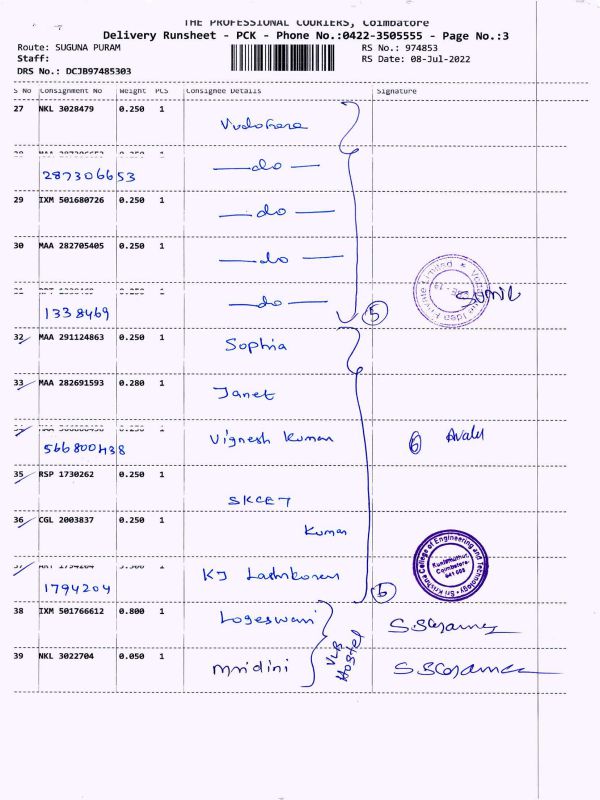 THE PROFESSIONAL COURIERS, Coimbatore
Delivery Runsheet - PCK - Phone No.:0422-3505555 - Page No.:3
Route: SUGUNA PURAM RS No.: 974853
Staff: RS Date: 08-Jul-2022
DRS No.: DCJB97485303
S No Consignment No Weight PCS Consignee Details Signature
27 NKL 3028479 0.250 1
28 MAA 287306653 0.250 1 do
287306653
29 IXM 501680726 0.250 1 do
30 MAA 282705405 0.250 1 do
1 do
1338469 5
32 MAA 291124863 0.250 1 Sophia
33 MAA 282691593 0.280 1 Janet
0.250 1 Vignesh Kumar 6
566800438
35 RSP 1730262 0.250 1
SKCET
36 CGL 2003837 0.250 1 Kumar
Sri Krishna College of Engineering and Technology
Kuniamuthur, Coimbatore- 641 008
37 1794204 1 KJ
1794204 6
38 IXM 501766612 0.800 1 Logeswari
VLB Hostel
39 NKL 3022704 0.050 1 Mridini